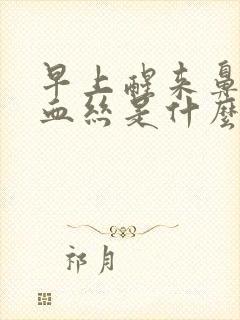 早上醒来鼻
血丝是什么
祁月